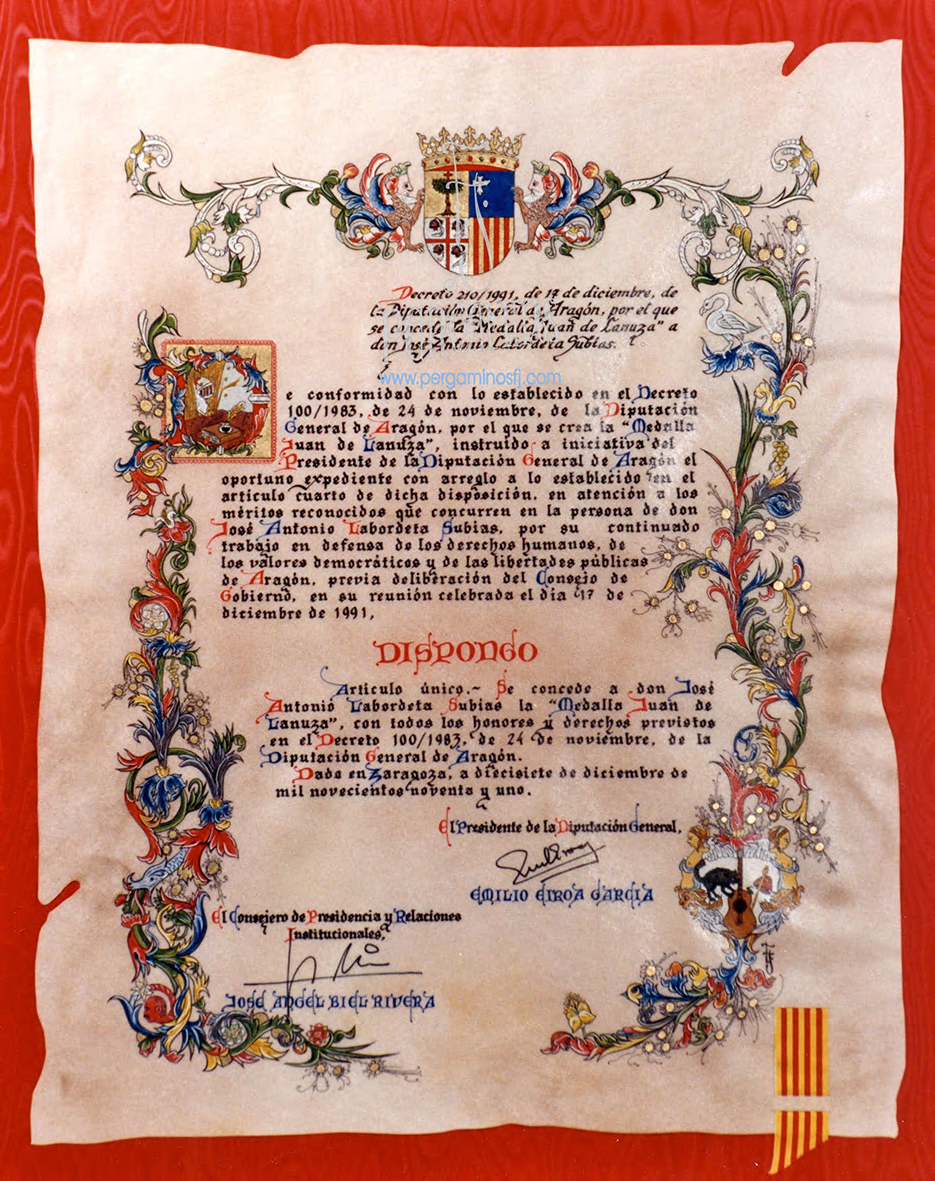 Decreto 210/1991, de 17 de diciembre, de
la Diputación General de Aragón, por el que
se concede la "Medalla Juan de Lanuza" a
don José Antonio Labordeta Subias.
www.pergaminosfj.com
e conformidad con lo establecido en el Decreto
100/1983, de 24 de noviembre, de la Diputación
General de Aragón, por el que se crea la "Medalla
Juan de Lanuza", instruido a iniciativa del
Presidente de la Diputación General de Aragón el
oportuno expediente con arreglo a lo establecido en el
artículo cuarto de dicha disposición, en atención a los
méritos reconocidos que concurren en la persona de don
José Antonio Labordeta Subias, por su continuado
trabajo en defensa de los derechos humanos, de
los valores democráticos y de las libertades públicas
de Aragón, previa deliberación del Consejo de
Gobierno, en su reunión celebrada el día 17 de
diciembre de 1991,
DISPONGO
Artículo único.- Se concede a don José
Antonio Labordeta Subias la "Medalla Juan de
Lanuza", con todos los honores y derechos previstos
en el Decreto 100/1983, de 24 de noviembre, de la
Diputación General de Aragón.
Dada en Zaragoza, a diecisiete de diciembre de
mil novecientos noventa y uno.
El Presidente de la Diputación General,
EMILIO EIROA GARCÍA
El Consejero de Presidencia y Relaciones
Institucionales,
JOSÉ ANGEL BIEL RIVERA